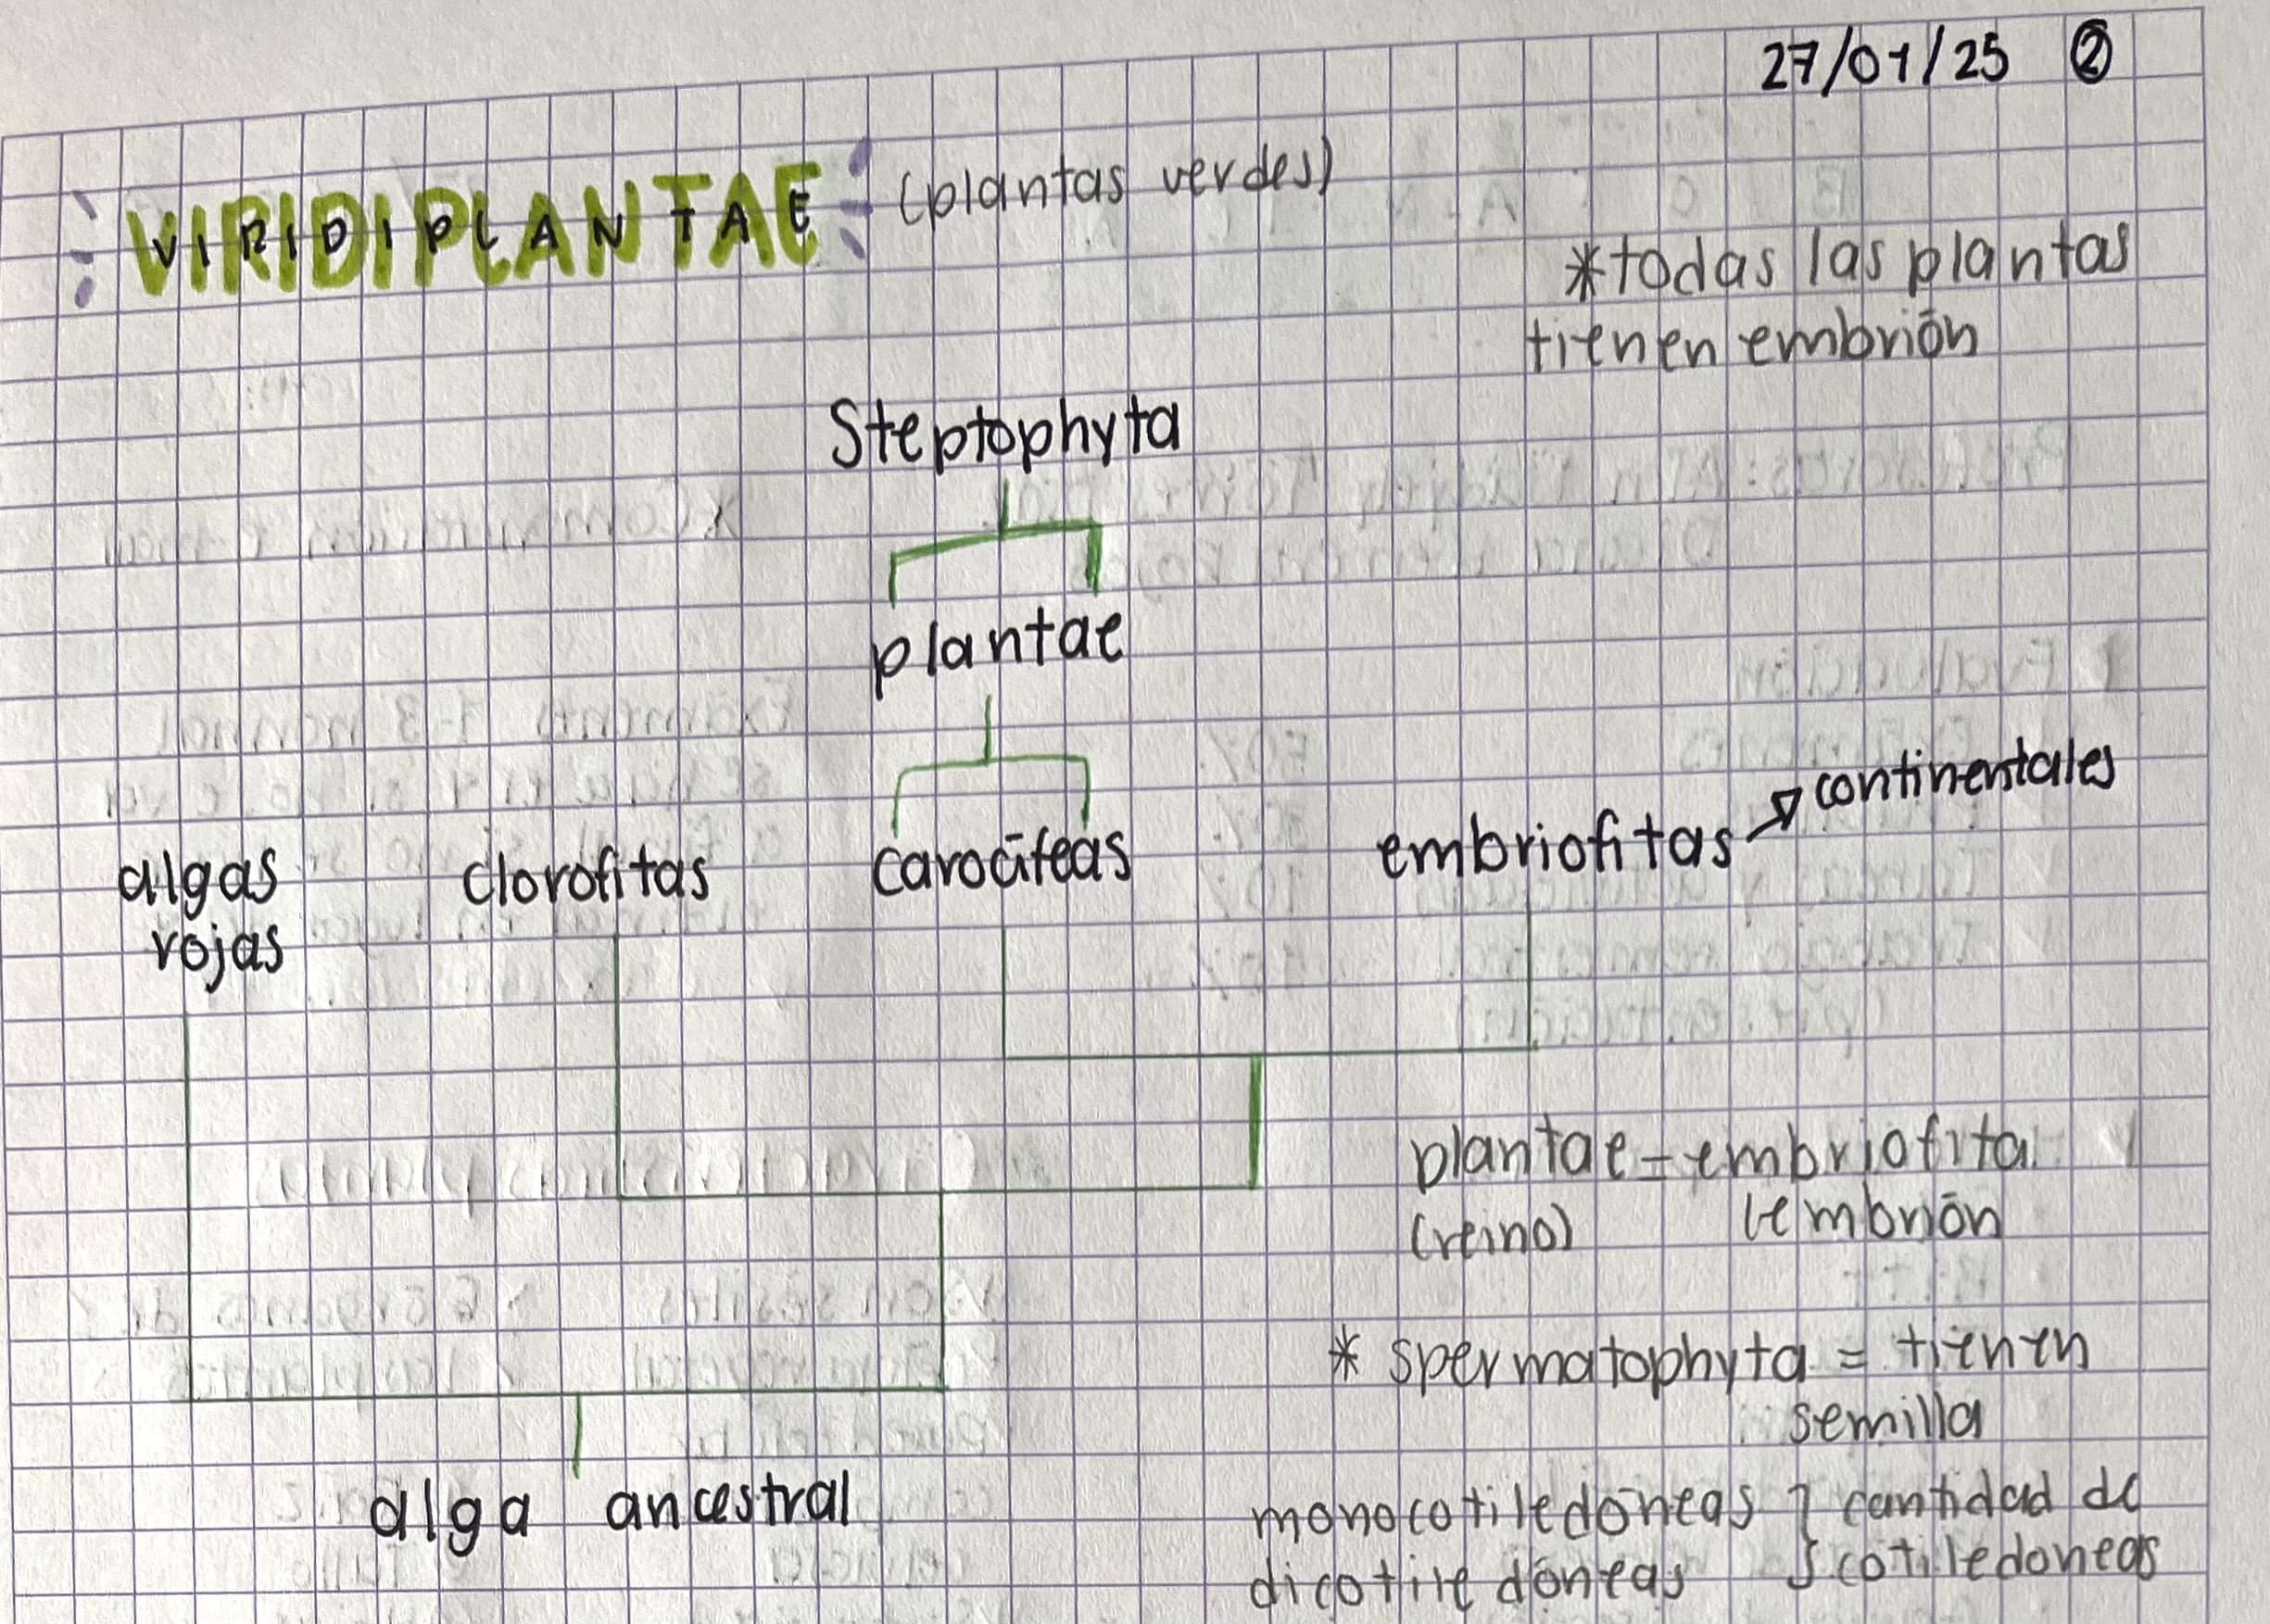 27/01/25 ②
VIRIDIPLANTAE (plantas verdes)
*todas las plantas
tienen embrión
Steptophyta
plantae
continentales
algas
rojas
clorofitas
carocíteas
embriofitas
plantae = embriofita
(reino)
embrión
* spermatophyta = tienen
semilla
alga ancestral
monocotiledóneas } cantidad de
dicotiledóneas } cotiledoneas